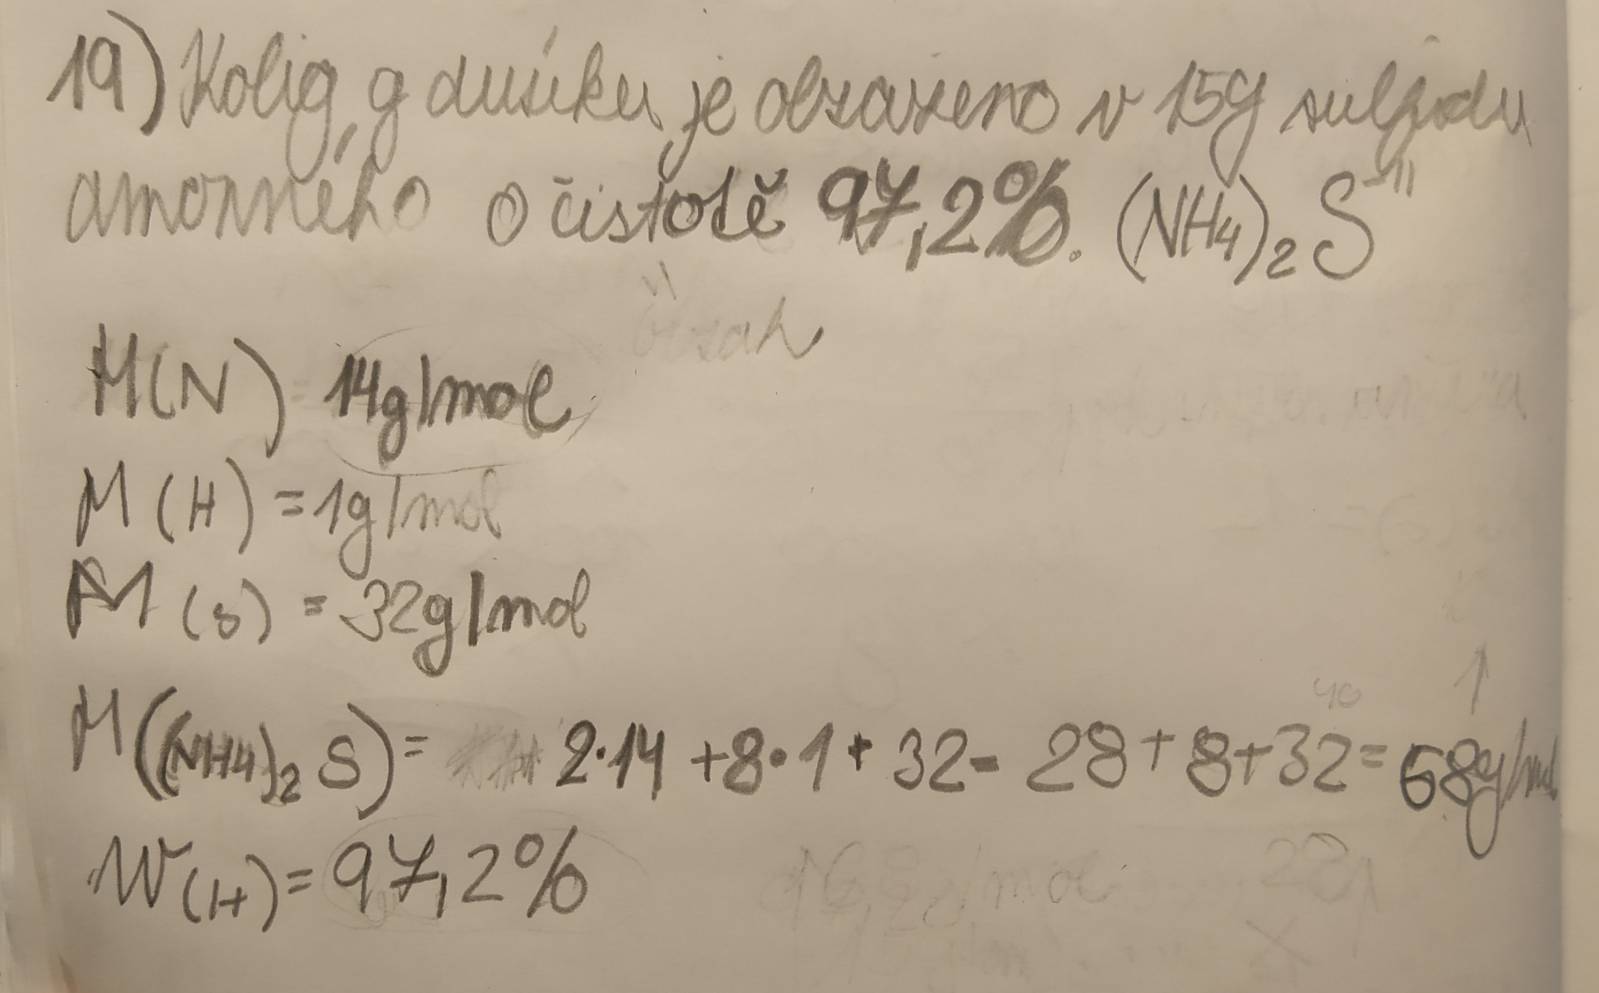 19) Kolig g dusíku je obsaženo v 15g sulfidu
amonného o čistotě 97,2%. (NH4)2 S-II
Obsah
M(N) 14g/mol
M(H) = 1g/mol
M(s) = 32g/mol
40
M((NH4)2 S) = 2·14 + 8·1 + 32 = 28 + 8 + 32 = 68g/mol
W(H) = 97,2%